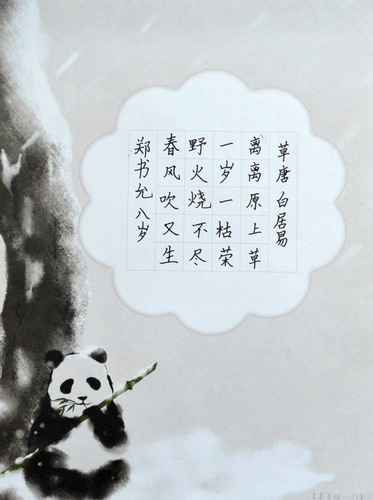 草 唐 白居易
离离原上草
一岁一枯荣
野火烧不尽
春风吹又生
郑书允 八岁